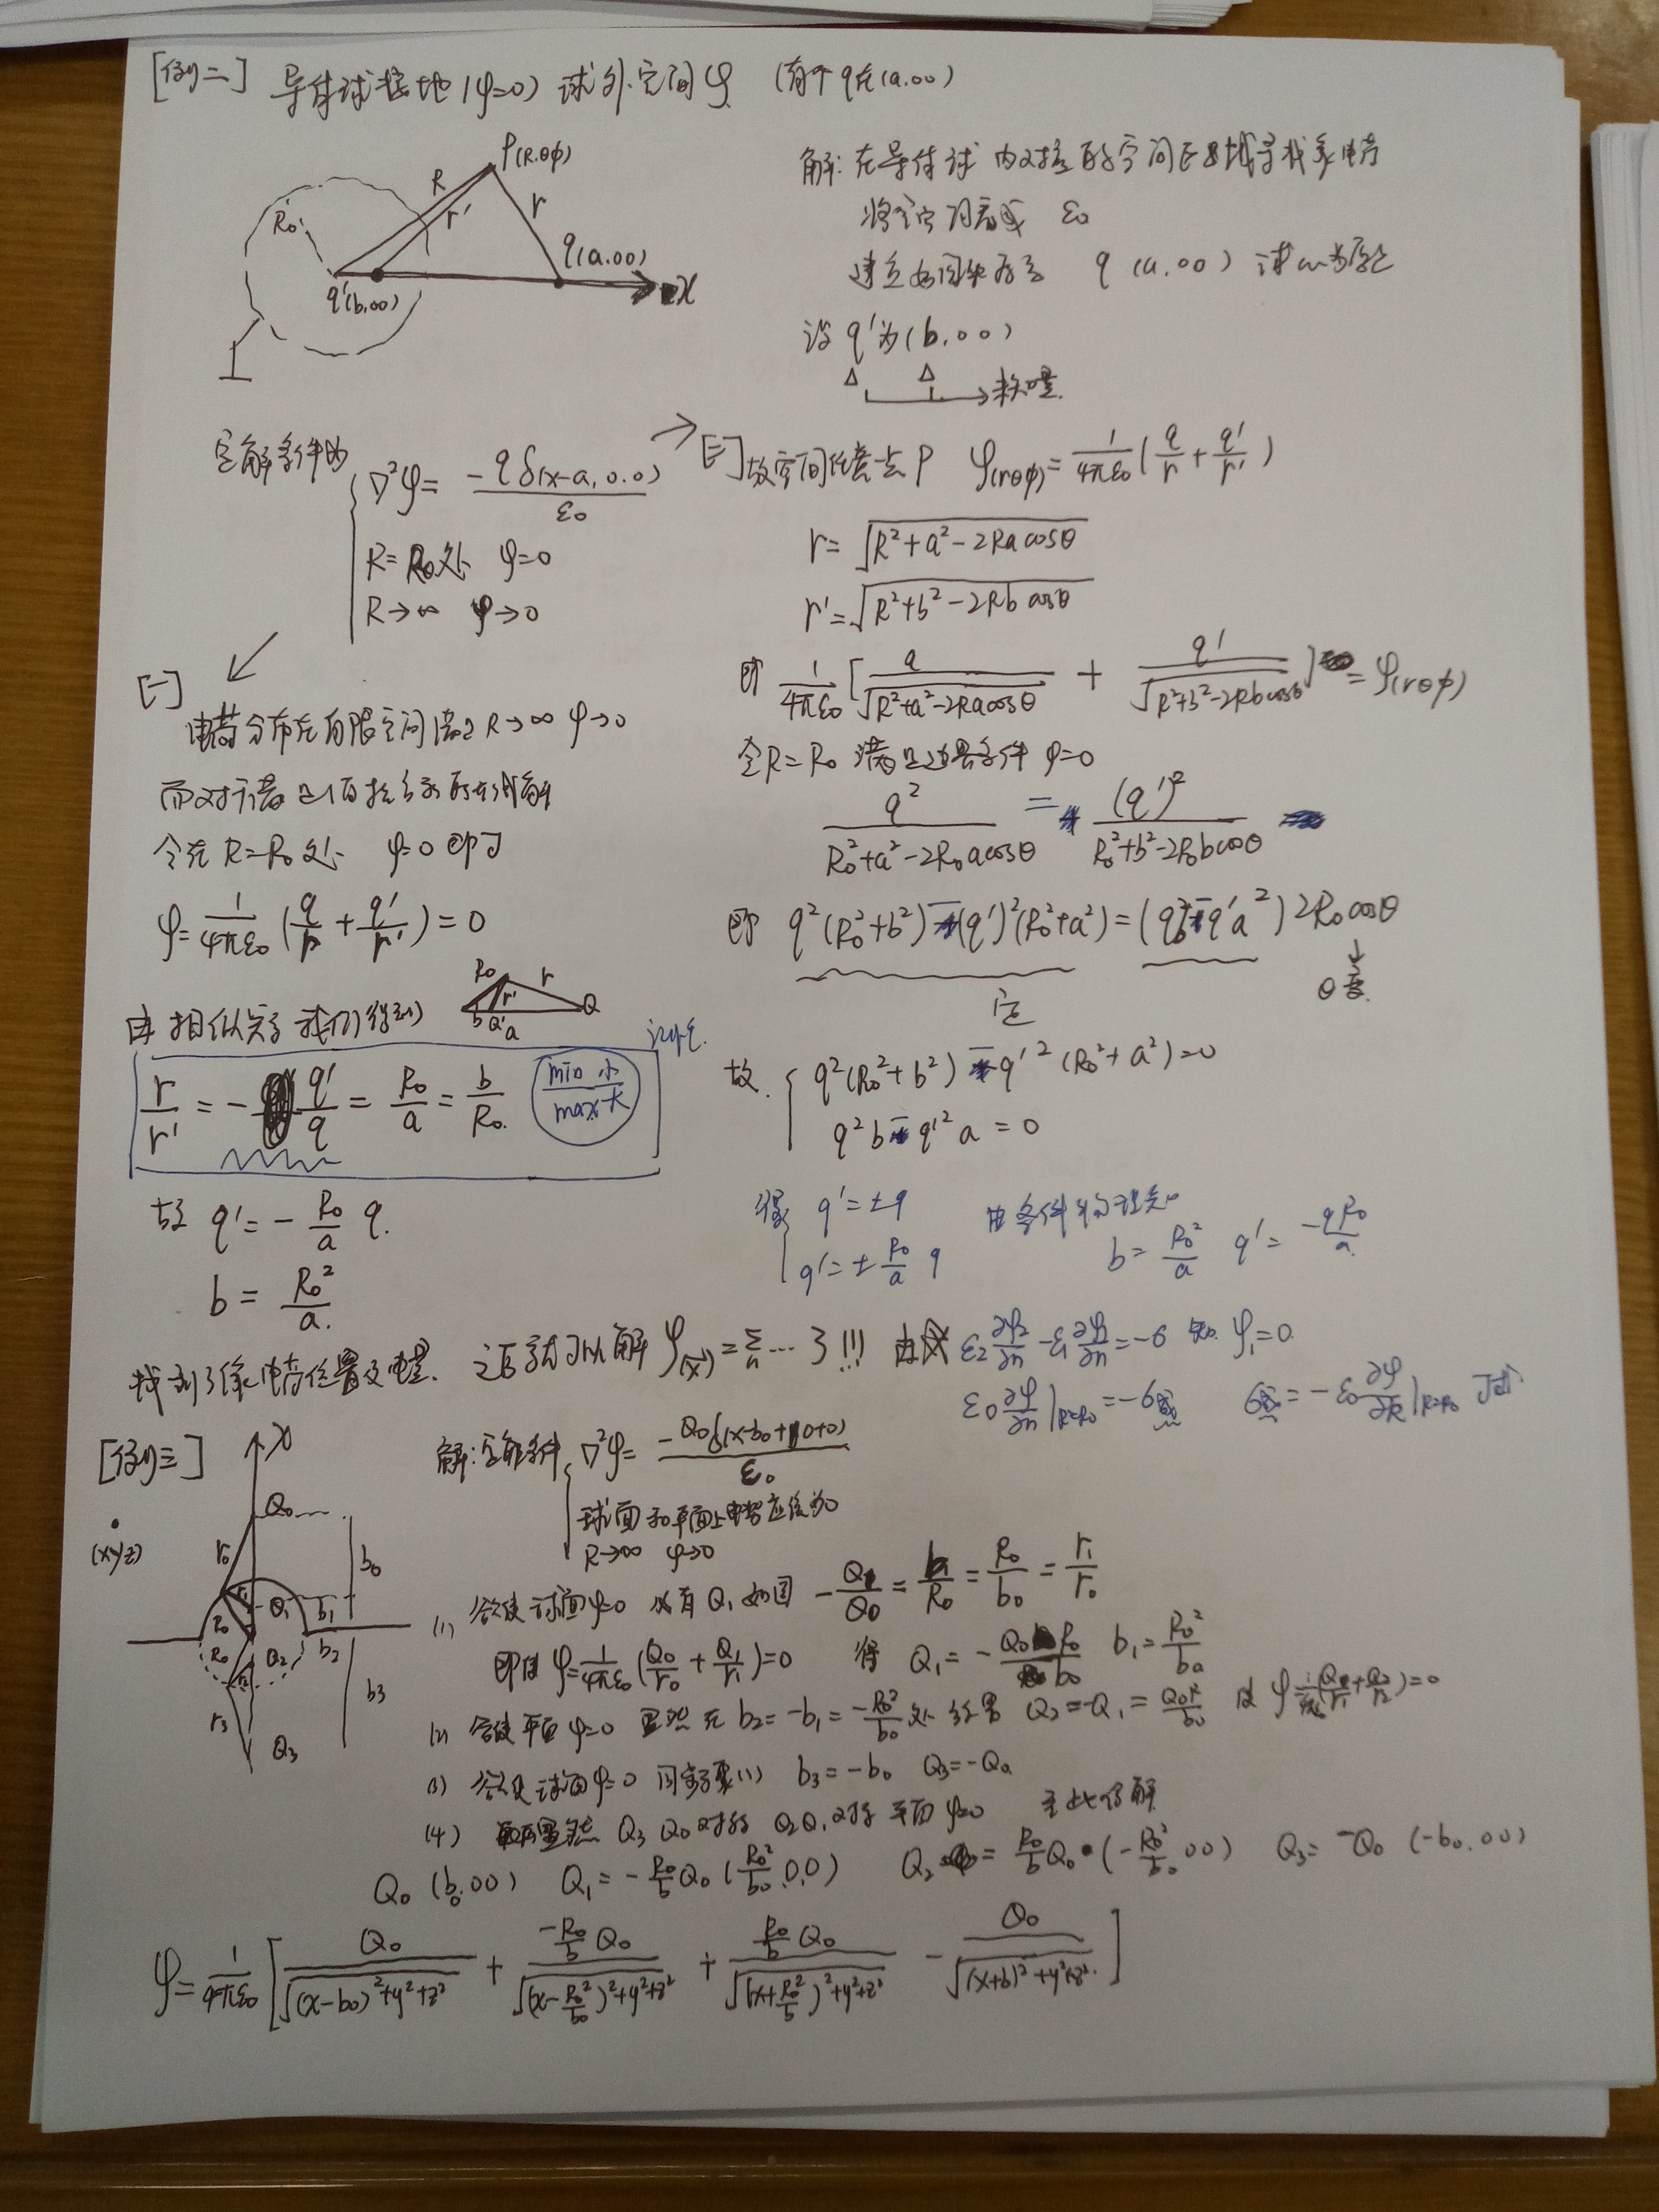 [例二] 导体球接地(φ=0) 球外空间φ (有个q在(a.00)
P(R.θφ)
R
r'
r
R₀
q(a.00)
q'(b,00)
x
解: 在导体球内对称的空间区域寻找象电荷
将全空间看成 ε₀
建立如图坐标系 q (a.00)
设 q'为(b.00)
Δ Δ
→ 未知量.
定解条件为
∇²φ= -qδ(x-a,0.0)/ε₀
R=R₀处 φ=0
R→∞ φ→0
[一]
电荷分布在有限空间满足 R→∞ φ→0
令在 R=R₀处 φ=0 即可
φ=1/4πε₀ (q/r + q'/r') = 0
由相似关系我们得到
R₀ r r' b Q' a Q
r/r' = - q'/q = R₀/a = b/R₀.
min 小
max 大
记住.
故 q' = - R₀/a q.
b = R₀²/a.
[二] 故空间任意一点 P φ(rθφ)= 1/4πε₀ (q/r + q'/r')
r= √R²+a²-2Racosθ
r'= √R²+b²-2Rbcosθ
即 1/4πε₀ [ q/√R²+a²-2Racosθ + q'/√R²+b²-2Rbcosθ ] = φ(rθφ)
令R=R₀ 满足边界条件 φ=0
q²/R₀²+a²-2R₀acosθ = (q')²/R₀²+b²-2R₀bcosθ
即 q²(R₀²+b²) - (q')²(R₀²+a²) = (q²b - q'a²) 2R₀cosθ
定
↓
θ变.
故. q²(R₀²+b²) - q'²(R₀²+a²)=0
q²b - q'²a = 0
得 q'=±q
q'=± R₀/a q
由条件物理知
b= R₀²/a q'= -qR₀/a
找到了像电荷位置及电量. 之后就可以解 φ(x⃗)=Σn … 了!!!
由 ε₂∂φ₂/∂n - ε₁∂φ₁/∂n = -σ 知 φ₁=0
ε₀∂φ/∂n|R=R₀ = -σ感 σ感 = -ε₀∂φ/∂R|R=R₀ 可求
[例三]
x
Q₀
(xyz)
r₀
b₀
Q₁
b₁
R₀
R₀
Q₂
b₂
r₂
b₃
r₃
Q₃
解: 定解条件 ∇²φ= -Q₀δ(x-b₀+0+0)/ε₀
球面和平面上电势应该为0
R→∞ φ→0
(1) 欲使球面φ=0 必有Q₁如图 -Q₁/Q₀ = b₁/R₀ = R₀/b₀ = r₁/r₀
即使 φ=1/4πε₀(Q₀/r₀ + Q₁/r₁)=0 得 Q₁= -Q₀R₀/b₀ b₁= R₀²/b₀
(2) 欲使平面φ=0 显然在 b₂=-b₁=-R₀²/b₀处 Q₂=-Q₁= Q₀R/b₀ 使 φ= (Q₁/r₁+Q₂/r₂)=0
(3) 欲使球面φ=0 同步骤(1) b₃=-b₀ Q₃=-Q₀
(4) 显然 Q₃ Q₀对称 Q₂Q₁对称 平面φ=0 至此得解
Q₀ (b₀.00) Q₁=-R₀/b Q₀ (R₀²/b₀.0.0) Q₂= R₀/b Q₀ (-R₀²/b₀.00) Q₃= -Q₀ (-b₀.00)
φ= 1/4πε₀ [ Q₀/√(x-b₀)²+y²+z² + -R₀/b Q₀/√(x-R₀²/b₀)²+y²+z² + R₀/b Q₀/√(x+R₀²/b)²+y²+z² - Q₀/√(x+b)²+y²+z² ]